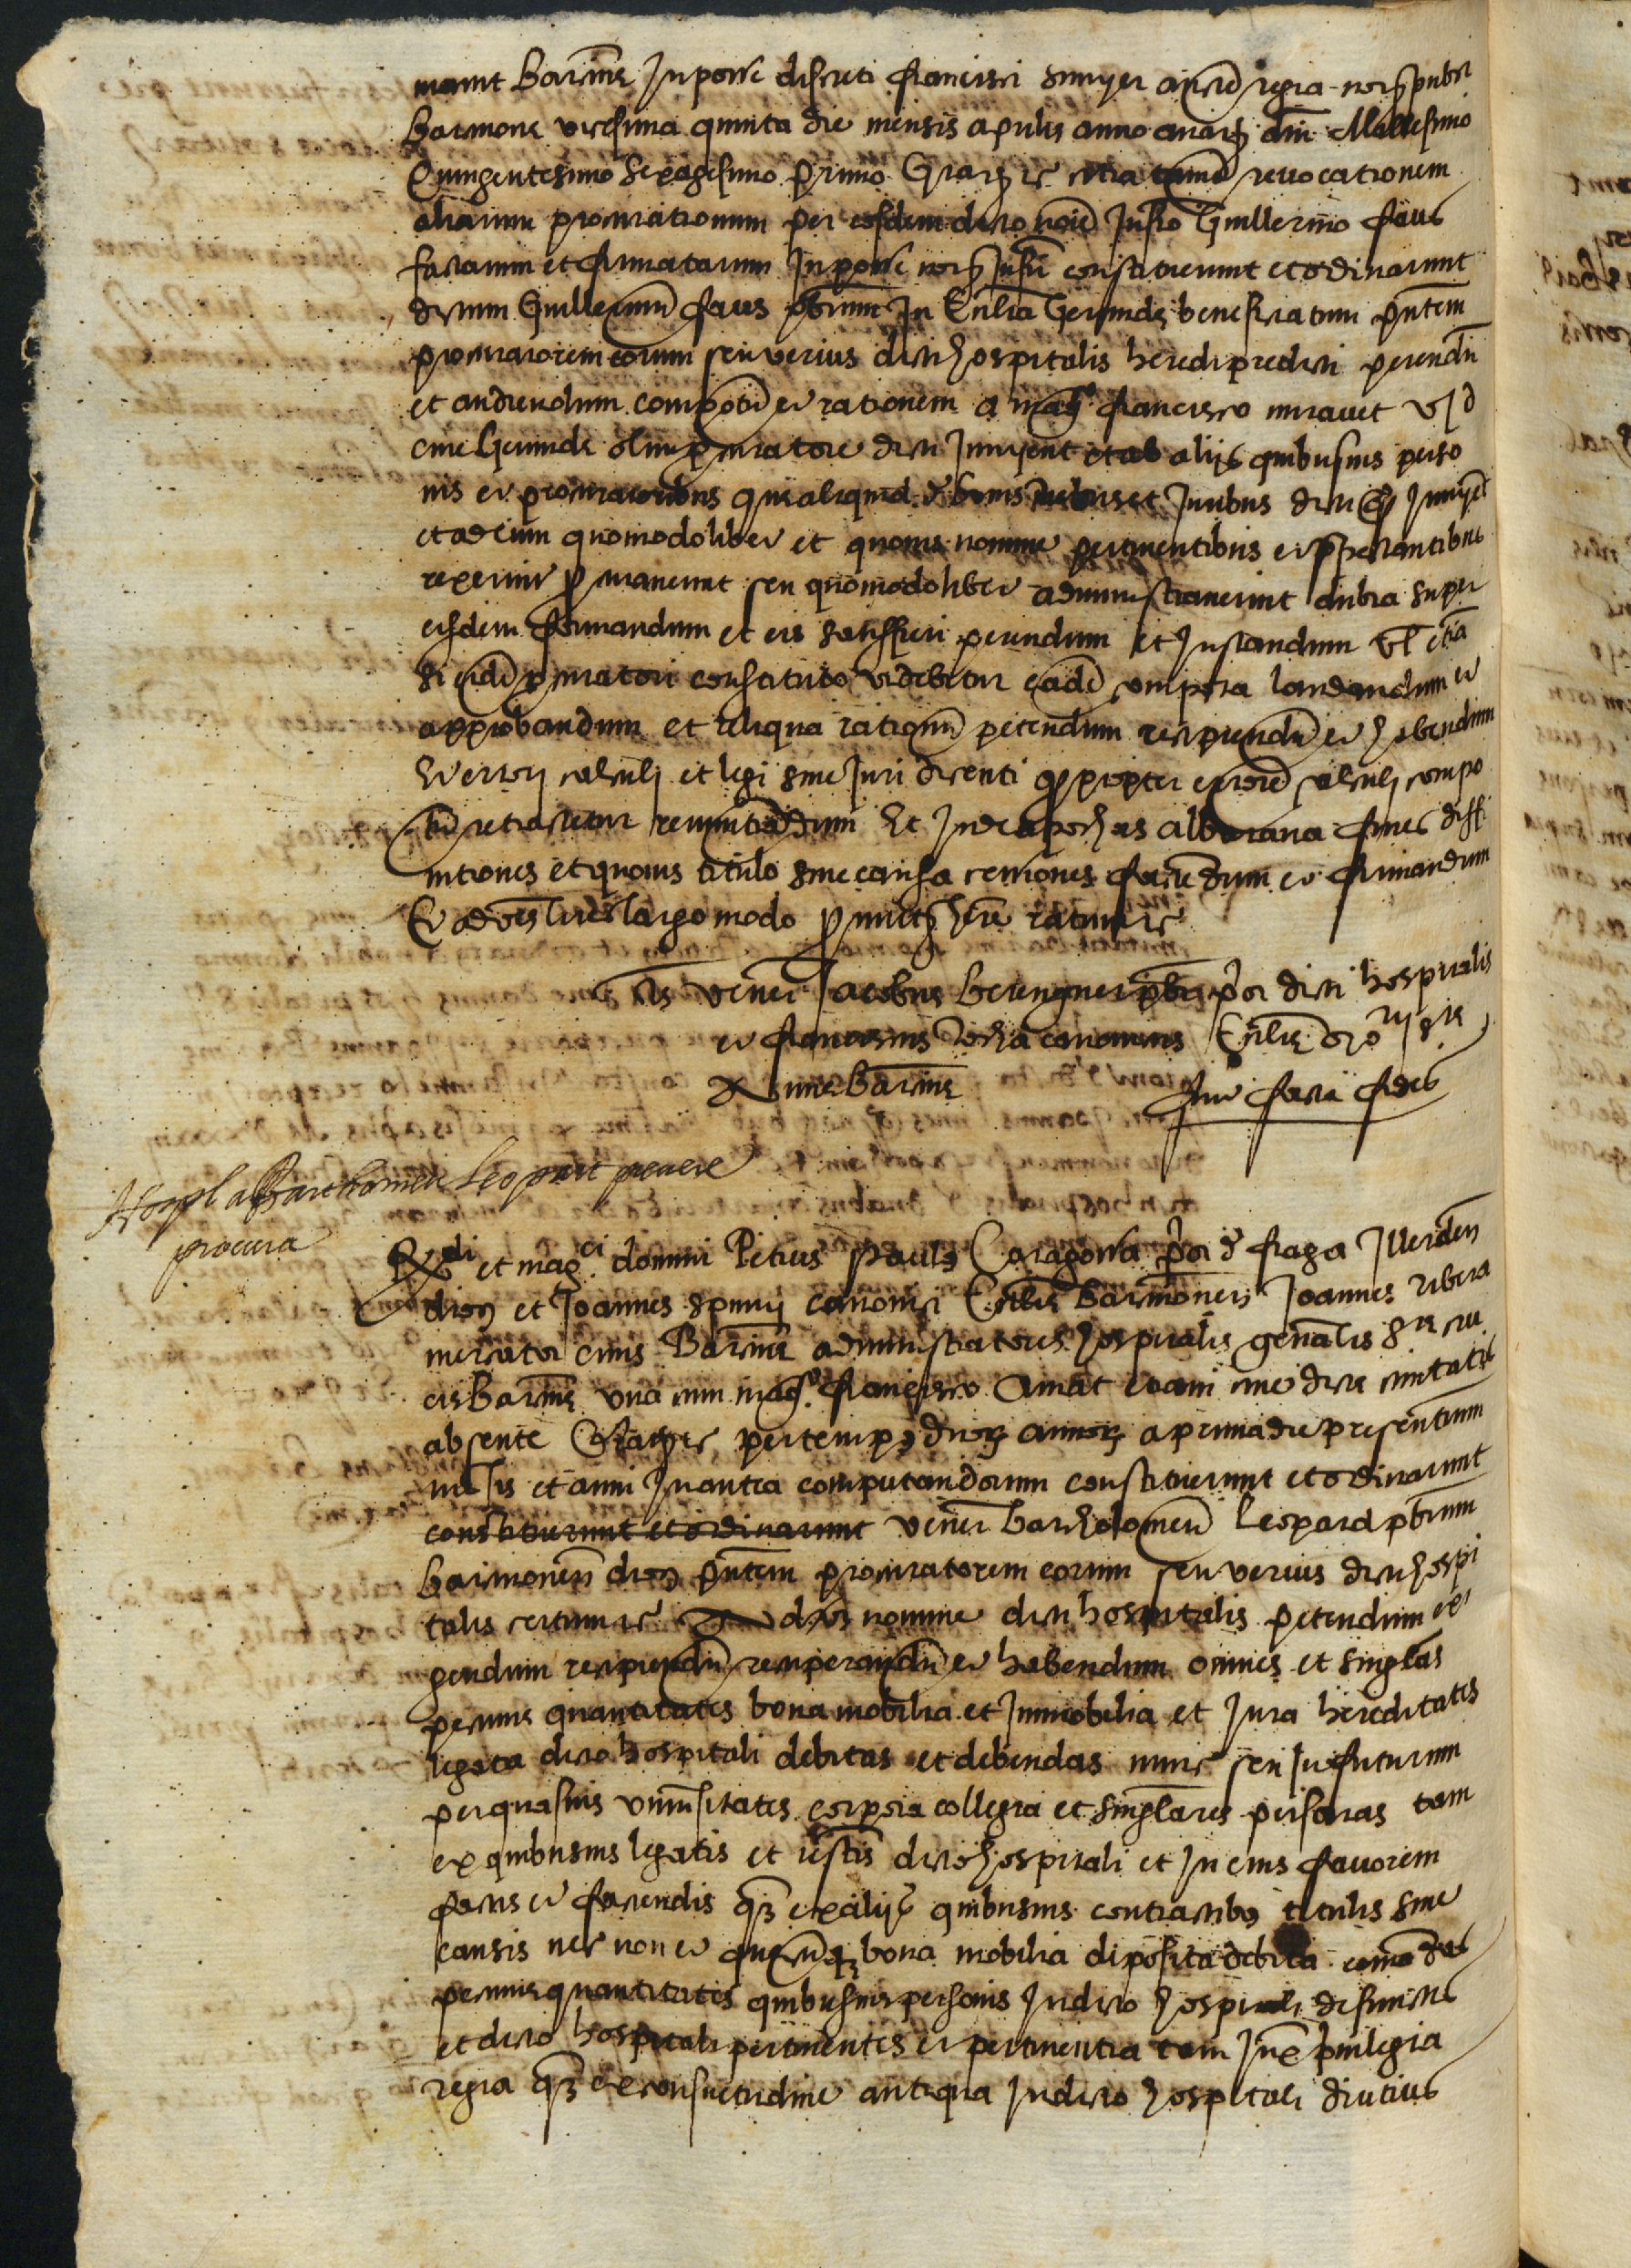 Barcinone In posse discreti francisci sunyer aucte regia nots publici
Barcinone vicesima quinta die mensis aprilis anno a natte dni Millesimo
Quingentesimo Sexagesimo Primo Gratis etc citra tamen revocationem
aliarum procurationum per eosdem dicto noie Infro Guillermo faus
factarum et firmatarum In posse nots Infri constituerunt et ordinarunt
dictum Guillermum faus pbrum In Ecclia Gerunde beneficiatum pntem
procuratorem eorum seu verius dicti hospitalis heredi predicti petendu
et audiendum compotu et rationem a magco francisco miravet V J d
cive Gerunde olim procuratore dicti Junyent et ab aliis quibusvis perso
nis et procuratoribus qui aliquid de bonis rebus et Juribus dicti Junyet
et ad eum quomodolibet et quovis nomine pertinentibus et spectantibus
rexerint procuraverint seu quomodolibet administraverint dubia super
eisdem formandum et eis satisfieri petendum et Instandum vl etia
si eide procuratori constituto videbitur eade compota laudandum et
approbandum et reliqua rationu petendum recipiendu et habendum
Et errori calculi et legi sive Juri dicenti quod propter errore calculi compo
tu retractetur renuntiandum Et Inde apochas albarana fines diffi
nitiones et quovis titulo sive causa cessiones faciendum et firmandum
Et ad oes lites largo modo promitts here ratum etc
Tes vener Jacobus berenguer pbr por dicti hospitalis
et franciscus canonicus Ecclie
cive Barcine
fuit facta fides
Hospl a Bartholomeu Leopart prevere
procura
Rdi et magci domini Petrus Pauls Caragossa por de fraga Illerden
dioc et Joannes spuny canonici Ecclie barcinonen Joannes ribera
mercator civis Barcine administratores hospitalis genalis ste cru
cis Barcine una cum magco francisco Amat etiam cive dicte civitatis
absente Gratis etc per tempus duor annor a prima die presentium
mesis et anni In antea computandorum constituerunt et ordinarunt
constituerunt et ordinarunt vener bartholomeu Leopard pbrum
barcinonen dioc pntem procuratorem eorum seu verius dicti hospi
talis certum etc nomine dicti hospitalis petendum exi
gendum recipiendu recuperandu et habendum omnes et singlas
pecunie quantitates bona mobilia et Inmobilia et Jura hereditates
legata dicto hospitali debitas et debendas nunc seu In futurum
per quasvis universitates corpora collegia et singlares personas tam
ex quibusvis legatis et testis dicto hospitali et In eius favorem
factis et faciendis qz ex aliis quibusvis contractibus titulis sive
causis nec non et quecuqz bona mobilia diposita debita comadas
pecunie quantitates quibusvis personis In dicto hospitali defunctis
et dicto hospitali pertinentes et pertinentia tam Iux privilegia
regia qz ex consuetudine antiqua In dicto hospitali diutius